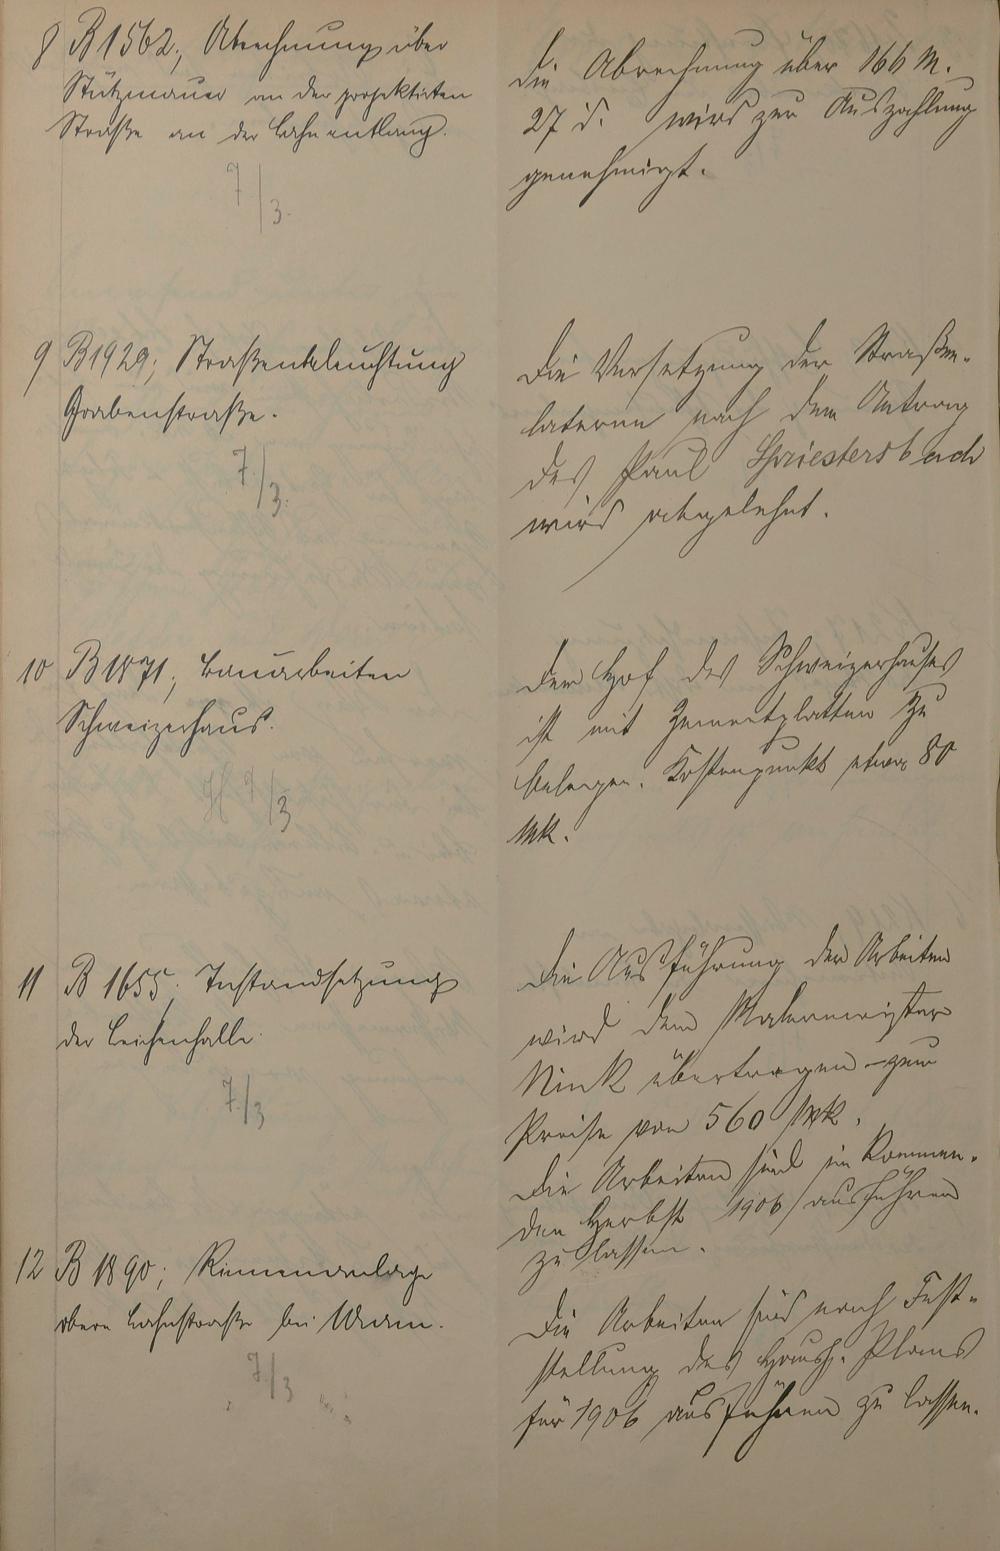 8 B 1562; Abrechnung über
Stützmauer an der projektirten
Straße an der Lahn entlang.
7/3.
die Abrechnung über 166 M.
27 d. wird zur Auszahlung
genehmigt.
9 B 1929; Straßenbeleuchtung
Grabenstraße.
7/3.
Die Versetzung der Straßen-
laterne nach dem Antrag
des Paul Spriestersbach
wird abgelehnt.
10 B 1871; Bauarbeiten
Schweizerhaus.
9/3
Der Hof des Schweizerhauses
ist mit Zementplatten zu
belegen. Kostenpunkt etwa 80
Mk.
11 B 1655. Instandsetzung
der Leichenhalle.
7/3
Die Ausführung der Arbeiten
wird dem Malermeister
Nink übertragen zum
Preise von 560 Mk.
Die Arbeiten sind im kommen-
den Herbst 1906 ausführen
zu lassen.
12 B 1890; Rinnenanlage
obere Lahnstraße bei
7/3
Die Arbeiten sind nach Fest-
stellung des Haush. Plans
für 1906 ausführen zu lassen.